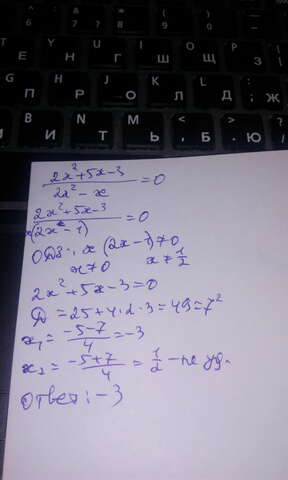 7 8 9 0
Н Г Ш Щ З
G H J K L
П Р О Л Д Ж
B N M
И Т Ь Б Ю
2x²+5x-3 / 2x²-x = 0
2x²+5x-3 / x(2x-1) = 0
ОДЗ: x(2x-1)≠0
x≠0 x≠1/2
2x²+5x-3=0
D=25+4·2·3=49=7²
x₁=-5-7/4=-3
x₂=-5+7/4=1/2-не уд.
Ответ:-3